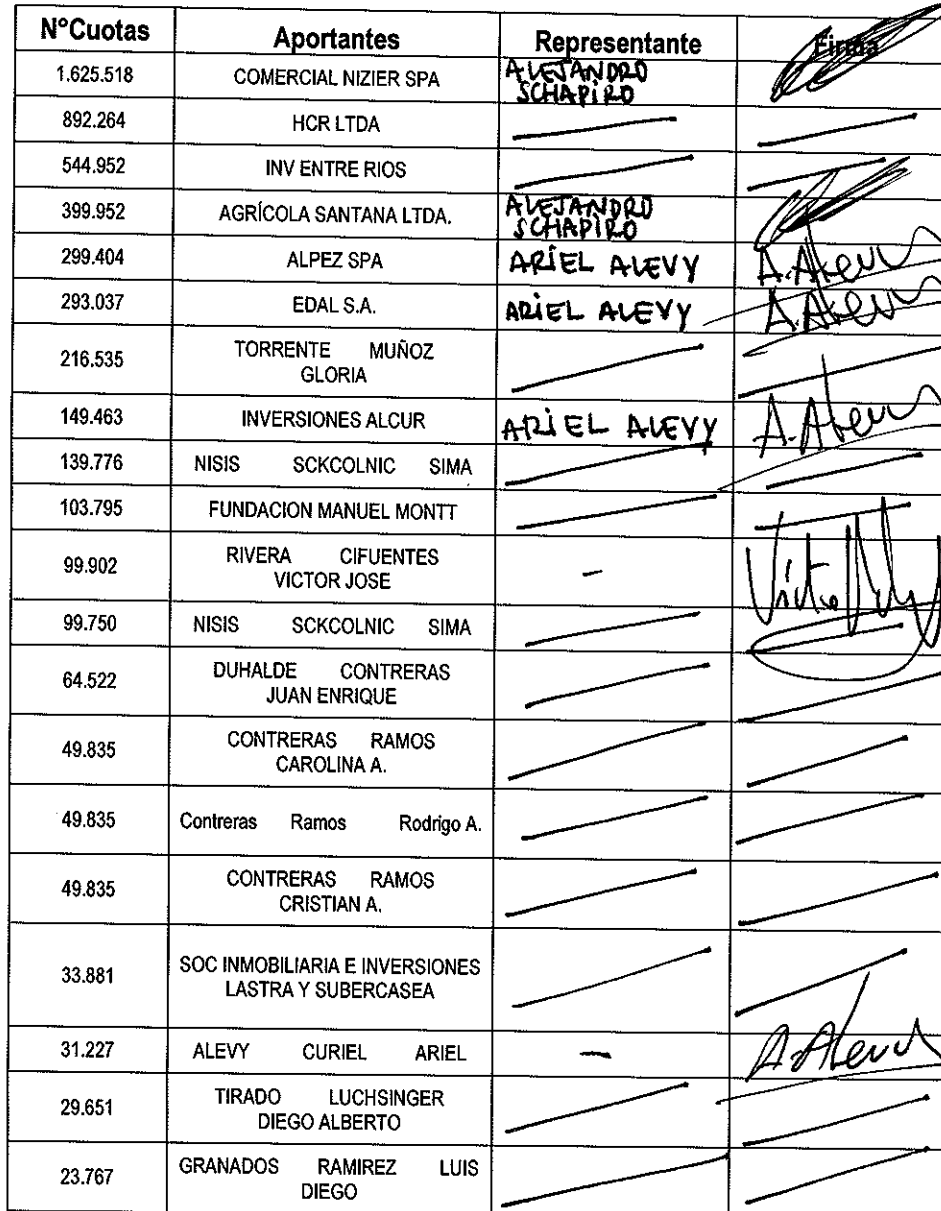 N°Cuotas Aportantes Representante Firma
1.625.518 COMERCIAL NIZIER SPA ALEJANDRO
SCHAPIRO
892.264 HCR LTDA
544.952 INV ENTRE RIOS
399.952 AGRÍCOLA SANTANA LTDA. ALEJANDRO
SCHAPIRO
299.404 ALPEZ SPA ARIEL ALEVY A.Alevy
293.037 EDAL S.A. ARIEL ALEVY A.Alevy
216.535 TORRENTE MUÑOZ
GLORIA
149.463 INVERSIONES ALCUR ARIEL ALEVY A.Alevy
139.776 NISIS SCKCOLNIC SIMA
103.795 FUNDACION MANUEL MONTT
99.902 RIVERA CIFUENTES
VICTOR JOSE -
99.750 NISIS SCKCOLNIC SIMA
64.522 DUHALDE CONTRERAS
JUAN ENRIQUE
49.835 CONTRERAS RAMOS
CAROLINA A.
49.835 Contreras Ramos Rodrigo A.
49.835 CONTRERAS RAMOS
CRISTIAN A.
33.881 SOC INMOBILIARIA E INVERSIONES
LASTRA Y SUBERCASEA
31.227 ALEVY CURIEL ARIEL - A.Alevy
29.651 TIRADO LUCHSINGER
DIEGO ALBERTO
23.767 GRANADOS RAMIREZ LUIS
DIEGO